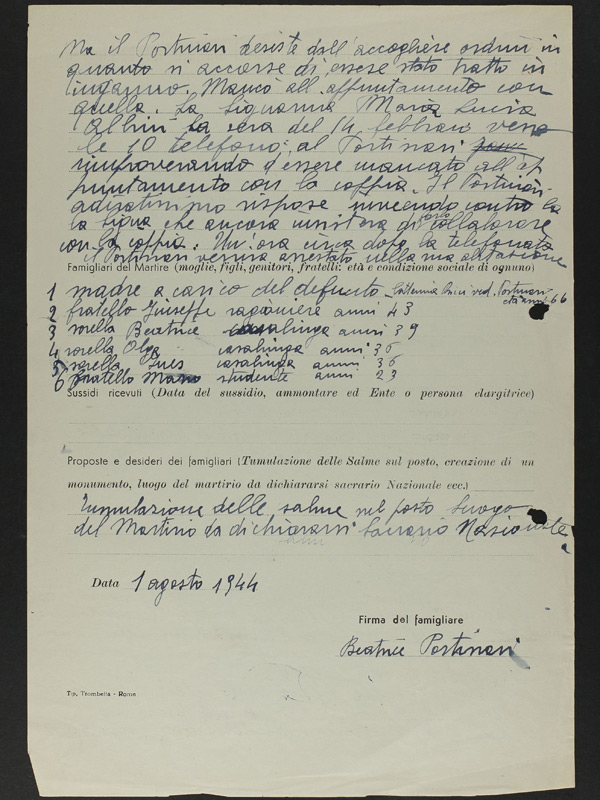 Ma il Portinari desiste dall'accogliere ordini in
quanto si accorse di essere stato tratto in
inganno. Mancò all'appuntamento con
quella. La Signorina Maria Lucia
Albini la sera del 14 febbraio verso
le 10 telefonò al Portinari
rimproverando d'essere mancato all'ap
puntamento con la coppia. Il Portinari
adiratissimo rispose contro la
la Sig.na che ancora insisteva di collaborare
con la coppia. Un'ora circa dopo la telefonata
il Portinari veniva arrestato nella sua abitazione
Famigliari del Martire (moglie, figli, genitori, fratelli: età e condizione sociale di ognuno)
1 madre a carico del defunto ved. Portinari
età anni 66
2 fratello Giuseppe anni 43
3 sorella Beatrice casalinga anni 39
4 sorella Olga casalinga anni 36
5 sorella Ines casalinga anni 36
6 fratello Mario studente anni 23
Sussidi ricevuti (Data del sussidio, ammontare ed Ente o persona elargitrice)
Proposte e desideri dei famigliari (Tumulazione delle Salme sul posto, creazione di un
monumento, luogo del martirio da dichiararsi sacrario Nazionale ecc.)
Tumulazione delle salme nel posto luogo
del Martirio da dichiararsi Sacrario Nazionale
Data 1 agosto 1944
Firma del famigliare
Beatrice Portinari
Tip. Trombetta - Roma